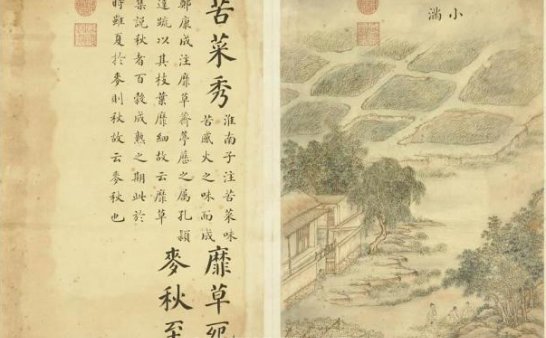 小滿
苦菜秀
淮南子注苦菜味
苦感火之味而成
靡草死
鄭康成注靡草薺葶藶之屬孔穎
達疏以其枝葉靡細故云靡草
麥秋至
集說秋者百穀成熟之期此於
時雖夏於麥則秋故云麥秋也